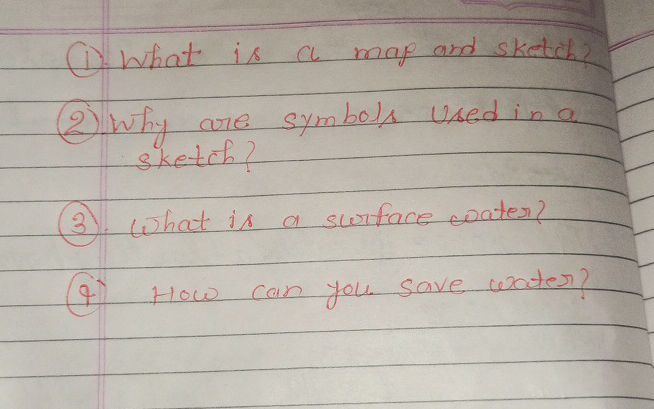 ① What is a map and sketch?
② Why are symbols used in a
sketch?
③ What is a surface water?
④ How can you save water?